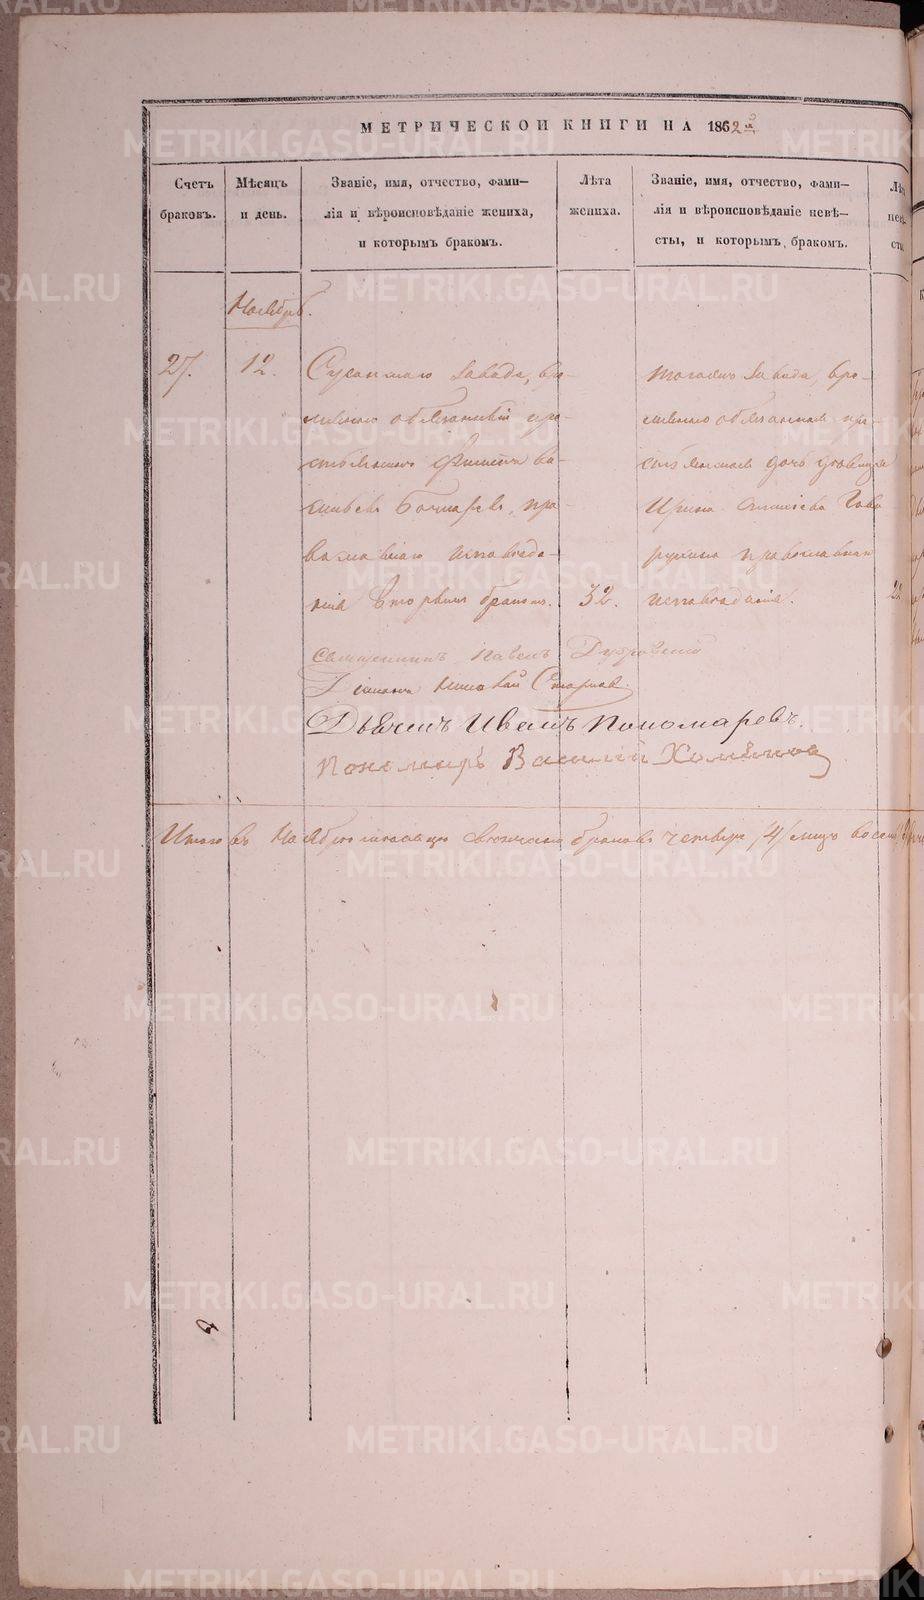 МЕТРИЧЕСКОЙ КНИГИ НА 1862й
Счетъ браковъ.
Мѣсяцъ и день.
Званіе, имя, отчество, фами-
лія и вѣроисповѣданіе жениха,
и которымъ бракомъ.
Лѣта жениха.
Званіе, имя, отчество, фами-
лія и вѣроисповѣданіе невѣ-
сты, и которымъ бракомъ.
Ноябрь.
27.
12.
Сусанскаго завода, вре-
менно обязанный кре-
Василь-
евъ Бочкаревъ, пра-
вославнаго исповѣда-
нія вторымъ бракомъ.
32.
тогоже завода, вре-
менно обязанная кре-
дочь девица
Ирина
православнаго
исповѣданія.
22
Священникъ Павелъ
Діаконъ Николай
Дьячекъ Иванъ Пономаревъ.
Пономарь Василий Хомяковъ
Итого въ Ноябрѣ месяце браковъ четыре /4/ лицъ восемь
METRIKI.GASO-URAL.RU